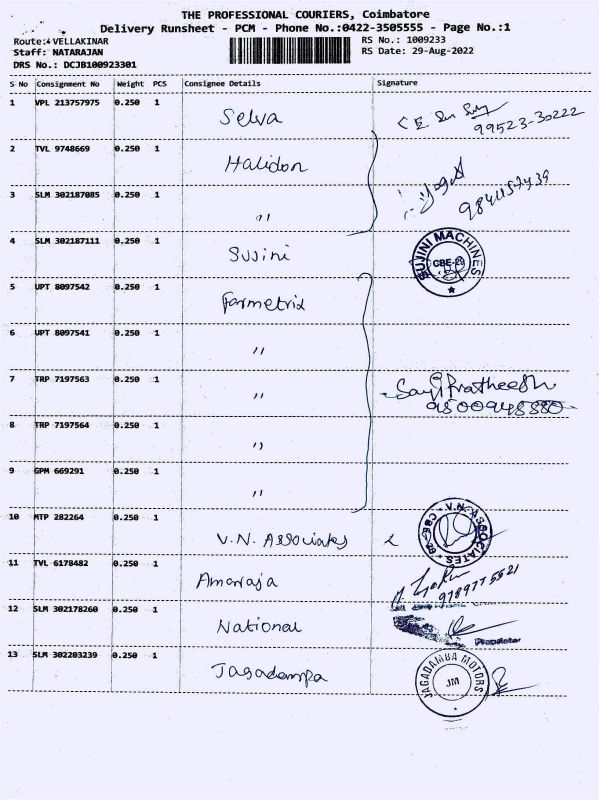 THE PROFESSIONAL COURIERS, Coimbatore
Delivery Runsheet - PCM - Phone No.:0422-3505555 - Page No.:1
Route: VELLAKINAR RS No.: 1009233
Staff: NATARAJAN RS Date: 29-Aug-2022
DRS No.: DCJB100923301
S No Consignment No Weight PCS Consignee Details Signature
1 VPL 213757975 0.250 1 Selva
99523-30222
2 TVL 9748669 0.250 1 Halidon
3 SLM 302187085 0.250 1 "
4 SLM 302187111 0.250 1 Sujini SUJINI MACHINES
5 UPT 8097542 0.250 1 Farmetrix
6 UPT 8097541 0.250 1 "
7 TRP 7197563 0.250 1 " Sayi Pratheesh
8 TRP 7197564 0.250 1 "
9 GPM 669291 0.250 1 "
10 MTP 282264 0.250 1 V.N. Associates V.N. ASSOCIATES
11 TVL 6178482 0.250 1 Amarraja
12 SLM 302178260 0.250 1 National Proprietor
13 SLM 302203239 0.250 1 Jagadampa JAGADAMBA MOTORS JM